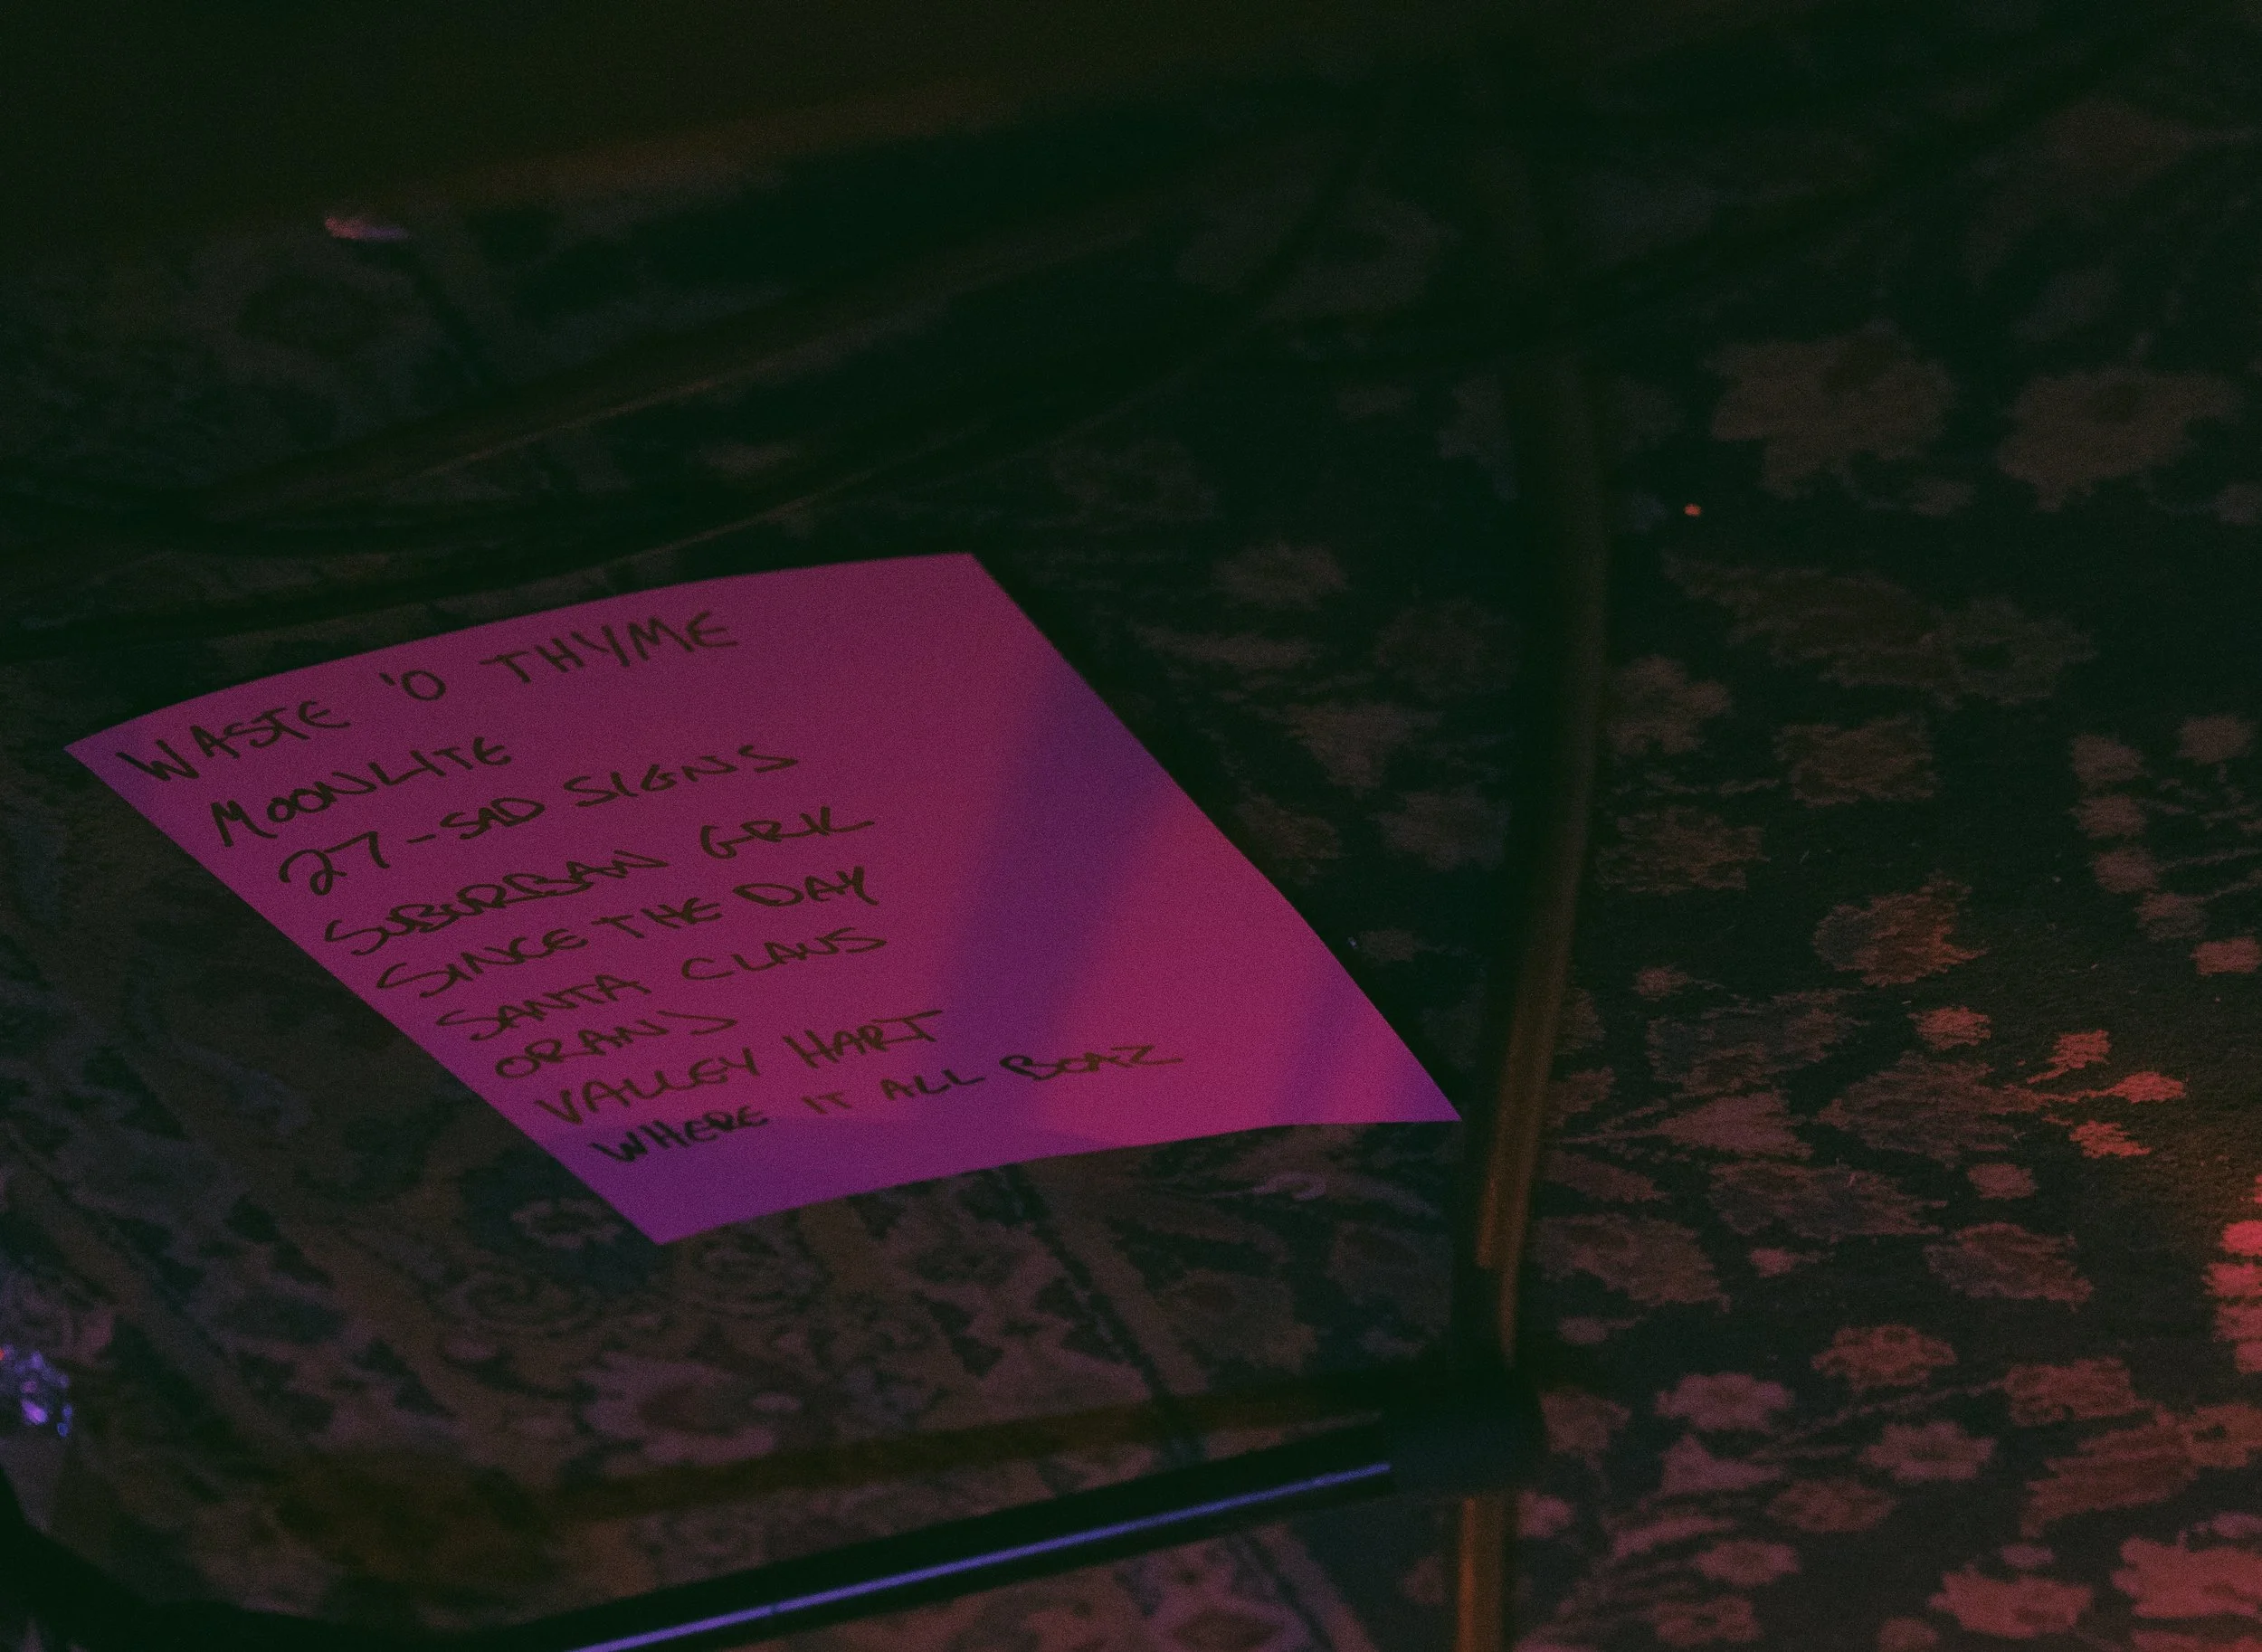 WASTE 'O THYME
MOONLITE
27-SAD SIGNS
SUBURBAN GRK
SINCE THE DAY
SANTA CLAUS
ORANJ
VALLEY HART
WHERE IT ALL BOAZ